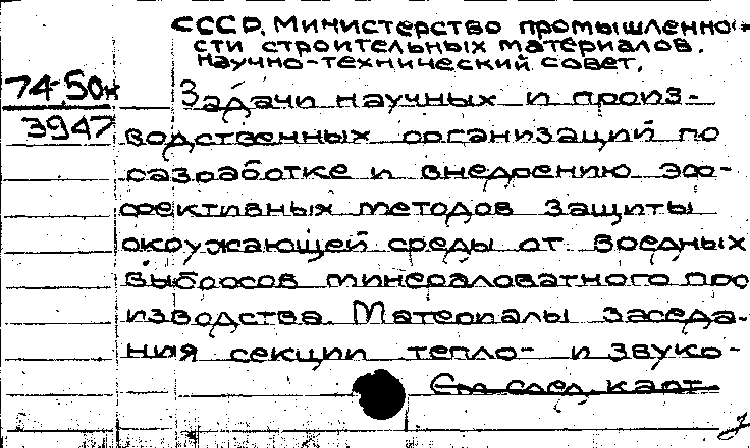 СССР. Министерство промышленно-
сти строительных материалов.
Научно-технический совет.
74-50к
3947
Задачи научных и произ-
водственных организаций по
разработке и внедрению эф-
фективных методов защиты
окружающей среды от вредных
выбросов минераловатного про
изводства. Материалы заседа-
ния секции тепло- и звуко-
См след. карт.